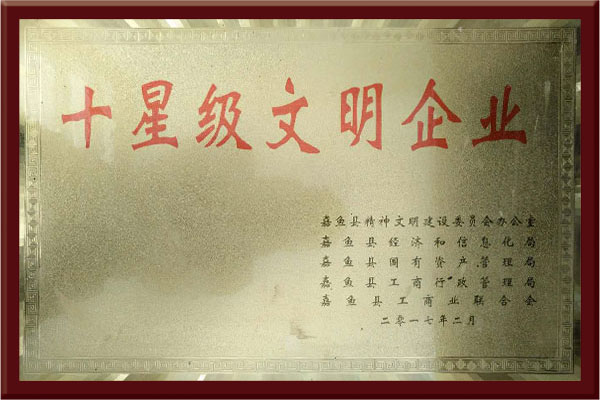 十星级文明企业
嘉鱼县精神文明建设委员会办公室
嘉鱼县经济和信息化局
嘉鱼县国有资产管理局
嘉鱼县工商行政管理局
嘉鱼县工商业联合会
二零一七年二月